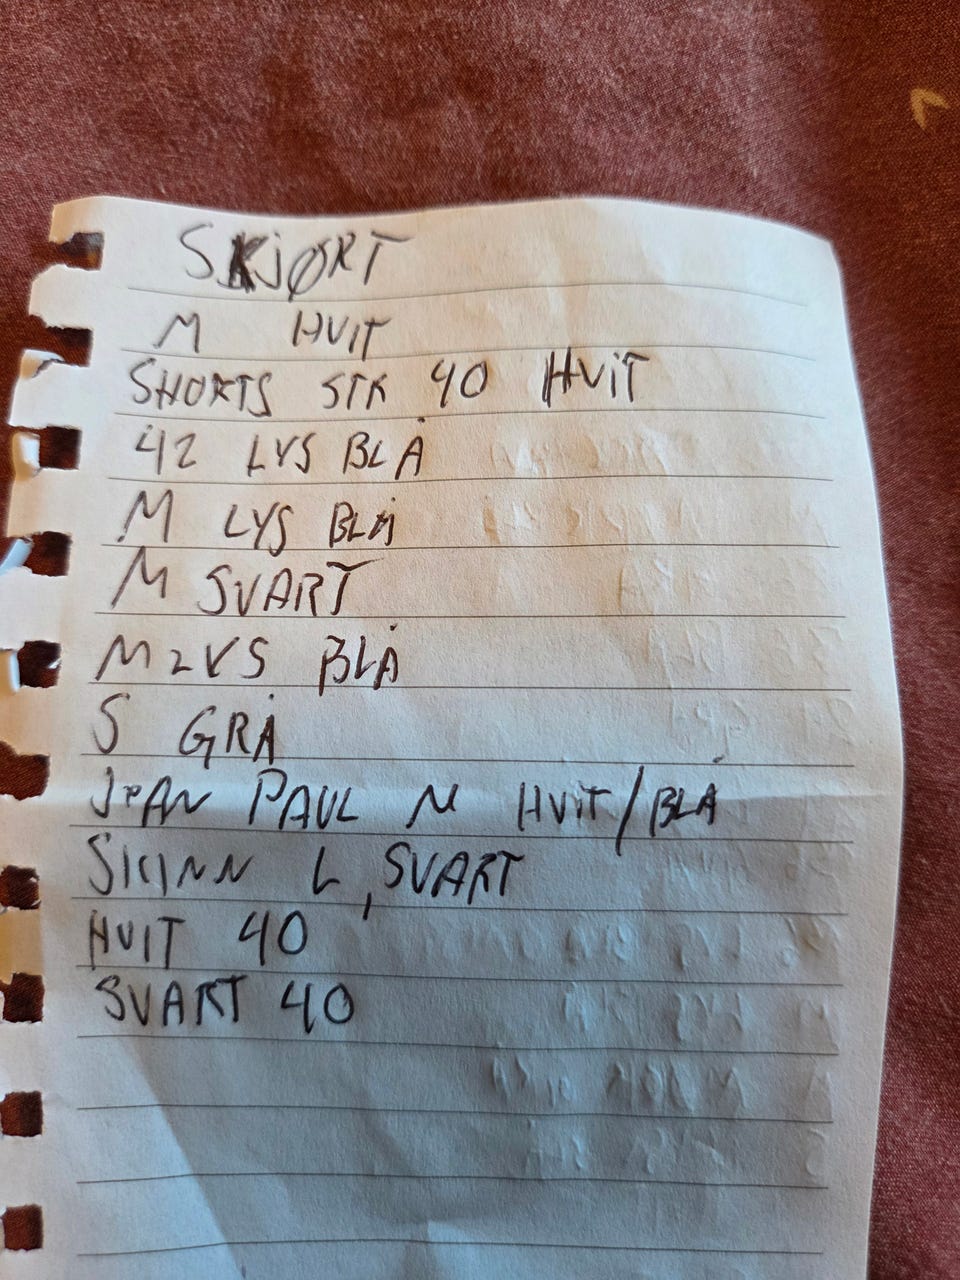 SKJØRT
M HVIT
SHORTS STK 40 HVIT
42 LYS BLÅ
M LYS BLÅ
M SVART
M LYS BLÅ
S GRÅ
JEAN PAUL M HVIT/BLÅ
SKINN L, SVART
HVIT 40
SVART 40